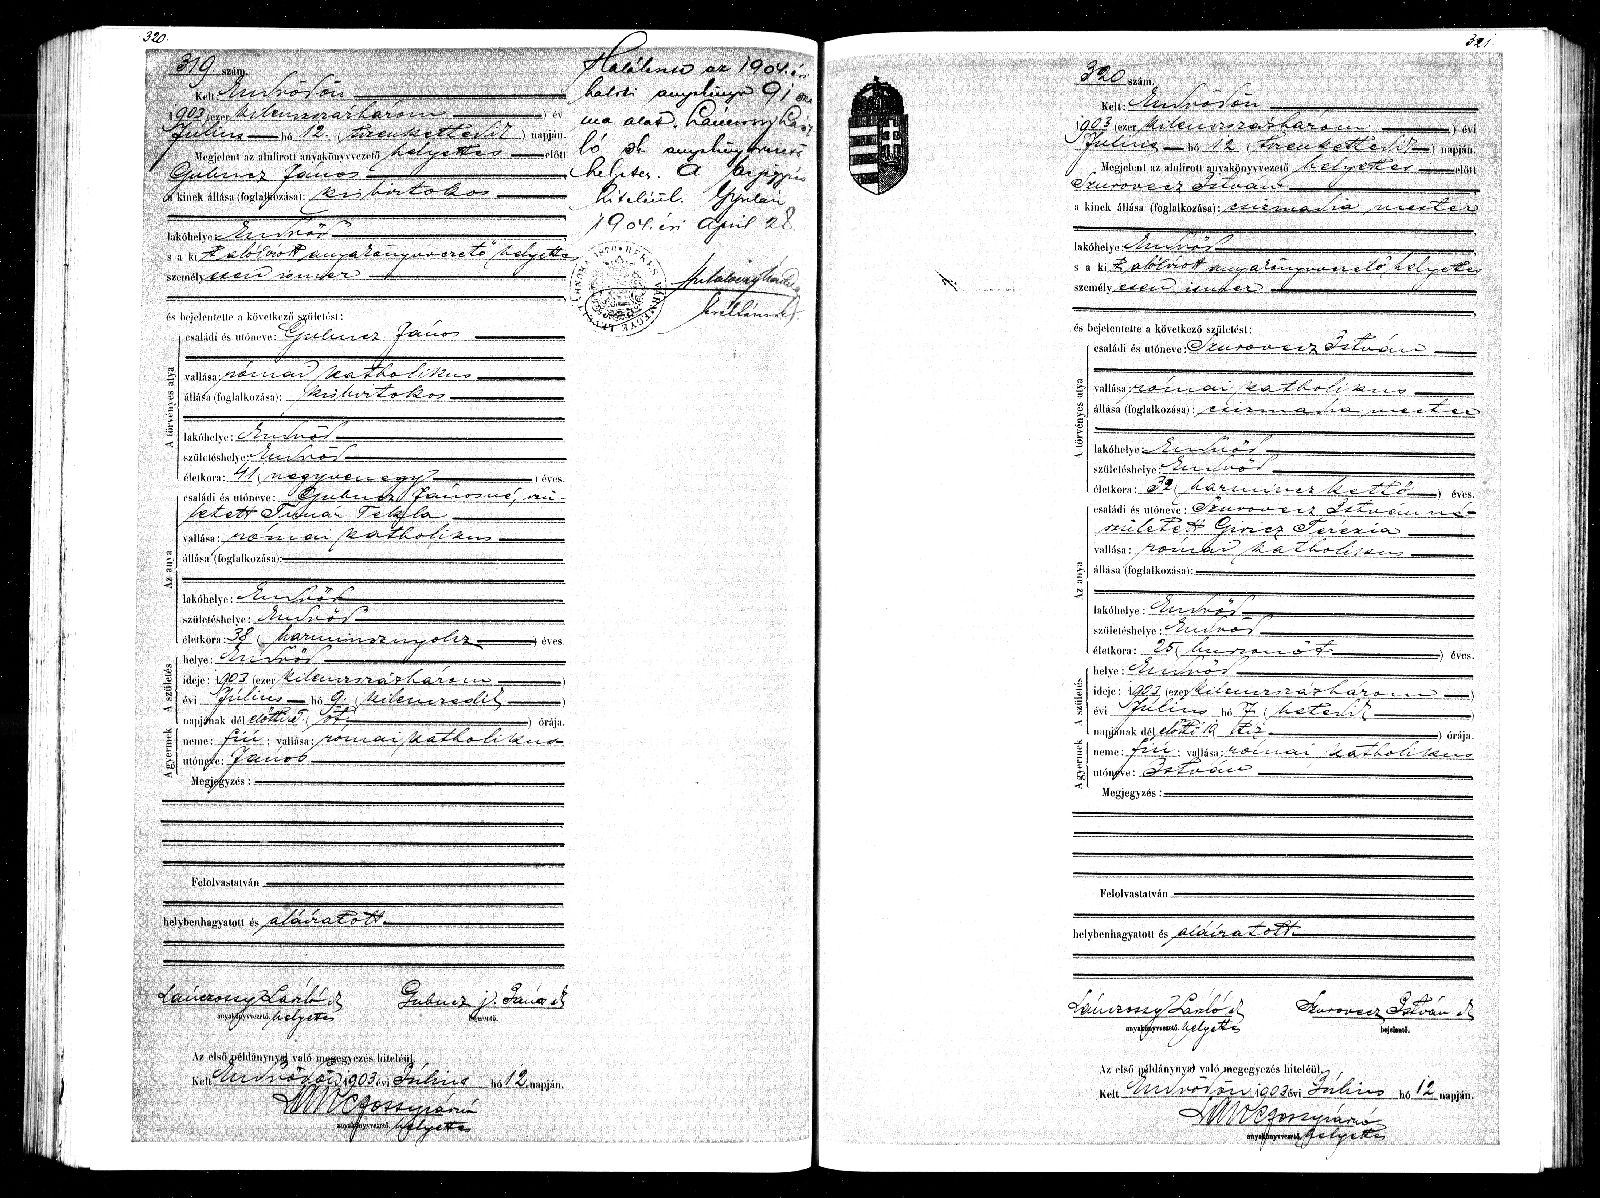 320
319 szám.
Kelt Endrődön
1903 (ezer kilenczszázhárom ) év
Július hó 12. (tizenkettedik) napján.
Megjelent az alulirott anyakönyvvezető helyettes előtt
Gubucz János
a kinek állása (foglalkozása): kisbirtokos
lakóhelye: Endrőd
s a kit alólírott anyakönyvvezető helyettes
személyesen ismer
és bejelentette a következő születést:
A törvényes atya
családi és utóneve: Gubucz János
vallása: római katholikus
állása (foglalkozása): kisbirtokos
lakóhelye: Endrőd
születéshelye: Endrőd
életkora: 41 (negyvenegy ) éves.
Az anya
családi és utóneve: Gubucz Jánosné, szü-
letett Tímár Tekla
vallása: római katholikus
állása (foglalkozása):
lakóhelye: Endrőd
születéshelye: Endrőd
életkora: 38 (harmincznyolcz ) éves.
A születés
helye: Endrőd
ideje: 1903 (ezer kilenczszázhárom )
évi Július hó 9. (kilenczedik )
napjának dél előtti 5 (öt ) órája.
A gyermek
neme: fiú; vallása: római katholikus
utóneve: János
Megjegyzés:
Felolvastatván
helybenhagyatott és aláíratott
Lánczossy László sk Gubucz j. János sk
anyakönyvvezető helyettes bejelentő.
Az első példánynyal való megegyezés hiteléül.
Kelt Endrődön 1903 évi Július hó 12 napján.
anyakönyvvezető. helyettes
Halálesete az 1904. évi
halotti anyakönyv 91 szá
ma alatt. Lánczossy Lász
ló sk anyakönyvvezető
helyettes. A bejegyzés
hiteléül. Gyulán
1904. évi April 28
321
320 szám.
Kelt: Endrődön
1903 (ezer kilenczszázhárom ) évi
Július hó 12 (tizenkettedik ) napján.
Megjelent az alulirott anyakönyvvezető helyettes előtt
Szurovecz István
a kinek állása (foglalkozása): csizmadia mester
lakóhelye Endrőd
s a kit alólírott anyakönyvvezető helyettes
személyesen ismer
és bejelentette a következő születést:
A törvényes atya
családi és utóneve: Szurovecz István
vallása: római katholikus
állása (foglalkozása): csizmadia mester
lakóhelye: Endrőd
születéshelye: Endrőd
életkora: 32 (harminczkettő ) éves.
Az anya
családi és utóneve: Szurovecz Istvánné-
született Giricz Terézia
vallása: római katholikus
állása (foglalkozása):
lakóhelye: Endrőd
születéshelye: Endrőd
életkora: 25 (huszonöt ) éves.
A születés
helye: Endrőd
ideje: 1903 (ezer kilenczszázhárom )
évi Július hó 7 (hetedik )
napjának dél előtti 10 (tíz ) órája.
A gyermek
neme: fiú; vallása: római katholikus
utóneve: István
Megjegyzés:
Felolvastatván
helybenhagyatott és aláíratott
Lánczossy László sk Szurovecz István sk
anyakönyvvezető. helyettes bejelentő.
Az első példánynyal való megegyezés hiteléül.
Kelt Endrődön 1903 évi Július hó 12 napján.
anyakönyvvezető. helyettes